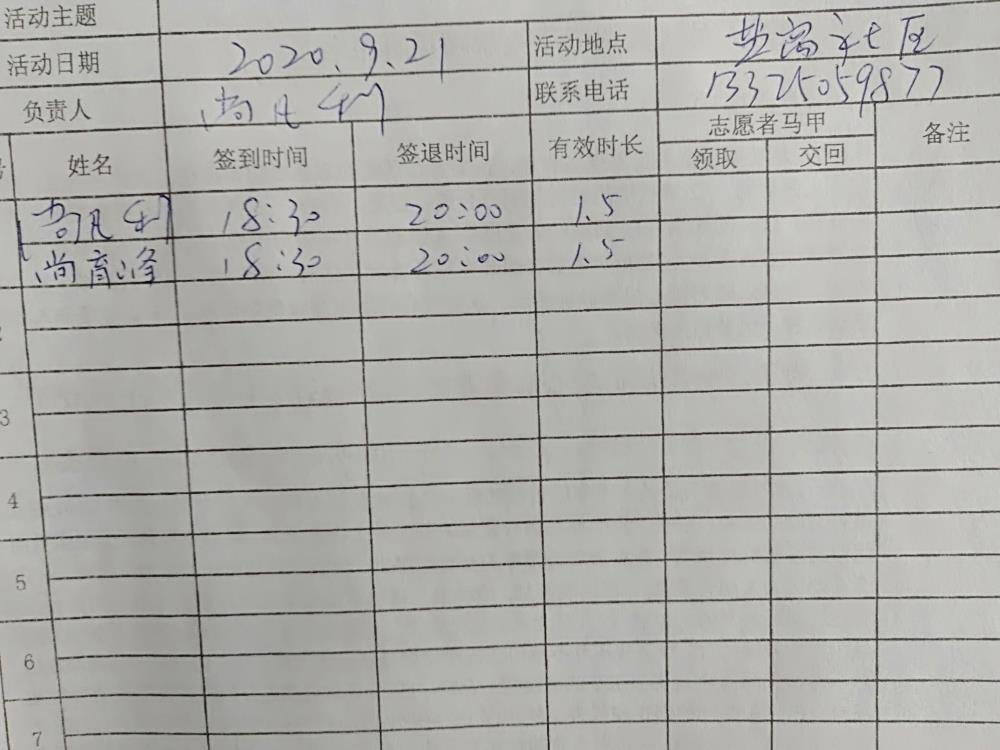 活动主题
活动日期 2020.9.21 活动地点 盐高社区
负责人 尚凡利 联系电话 13325059877
姓名 签到时间 签退时间 有效时长 志愿者马甲 备注
领取 交回
尚凡利 18:30 20:00 1.5
尚育峰 18:30 20:00 1.5
3
4
5
6
7